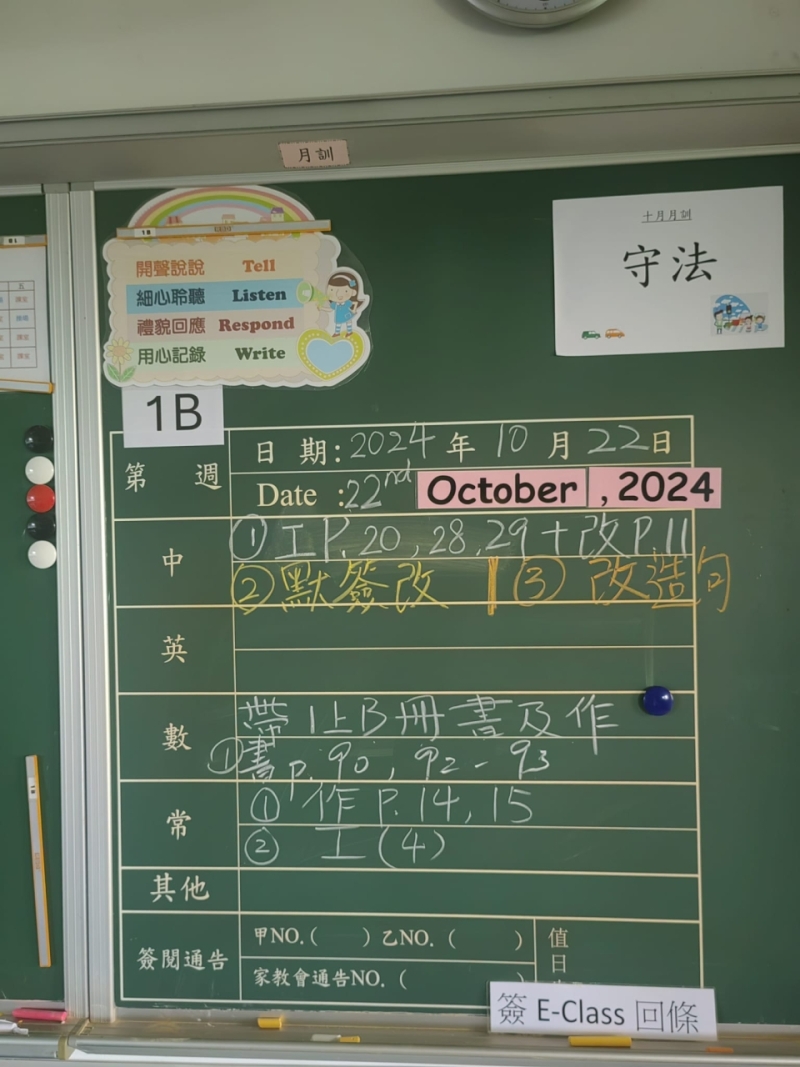 月訓
十月月訓
守法
開聲說說 Tell
細心聆聽 Listen
禮貌回應 Respond
用心記錄 Write
1B
第 週
日 期: 2024 年 10 月 22 日
Date : 22nd October , 2024
中
① 工 P. 20, 28, 29 + 改 P. 11
② 默簽改 | ③ 改造句
英
數
帶 1上B 冊書及作
① 書 p. 90, 92 - 93
常
① 作 P. 14, 15
② 工 (4)
其他
簽閱通告
甲NO. ( ) 乙NO. ( )
家教會通告NO. (
值
日
簽 E-Class 回條